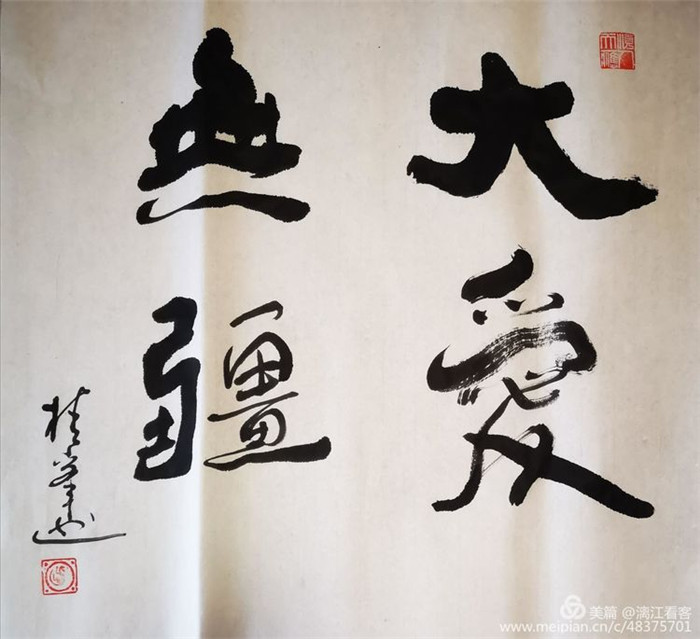 大愛
無疆
美篇 @漓江看客
www.meipian.cn/c/48375701